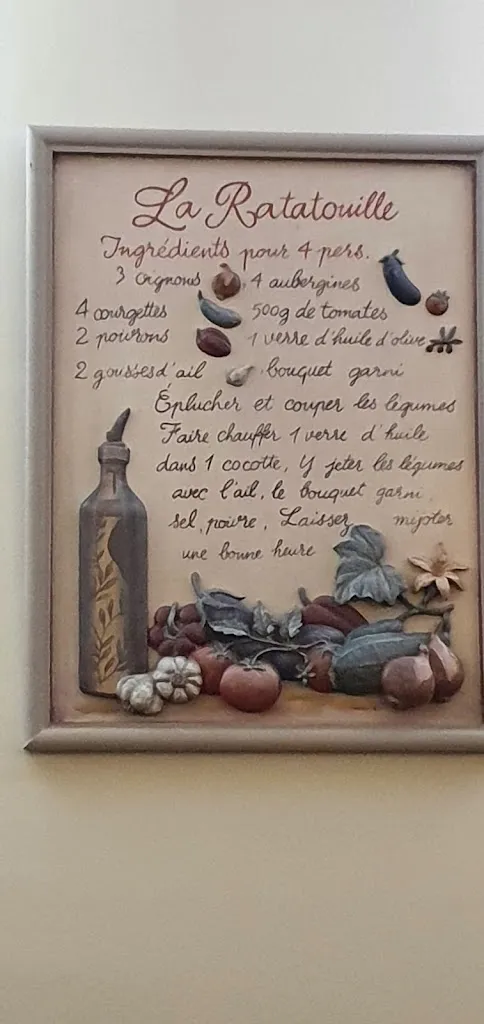 La Ratatouille
Ingrédients pour 4 pers.
3 oignons 4 aubergines
4 courgettes 500g de tomates
2 poivrons 1 verre d'huile d'olive
2 gousses d'ail bouquet garni
Éplucher et couper les légumes
Faire chauffer 1 verre d'huile
dans 1 cocotte, y jeter les légumes
avec l'ail, le bouquet garni,
sel, poivre, Laissez mijoter
une bonne heure